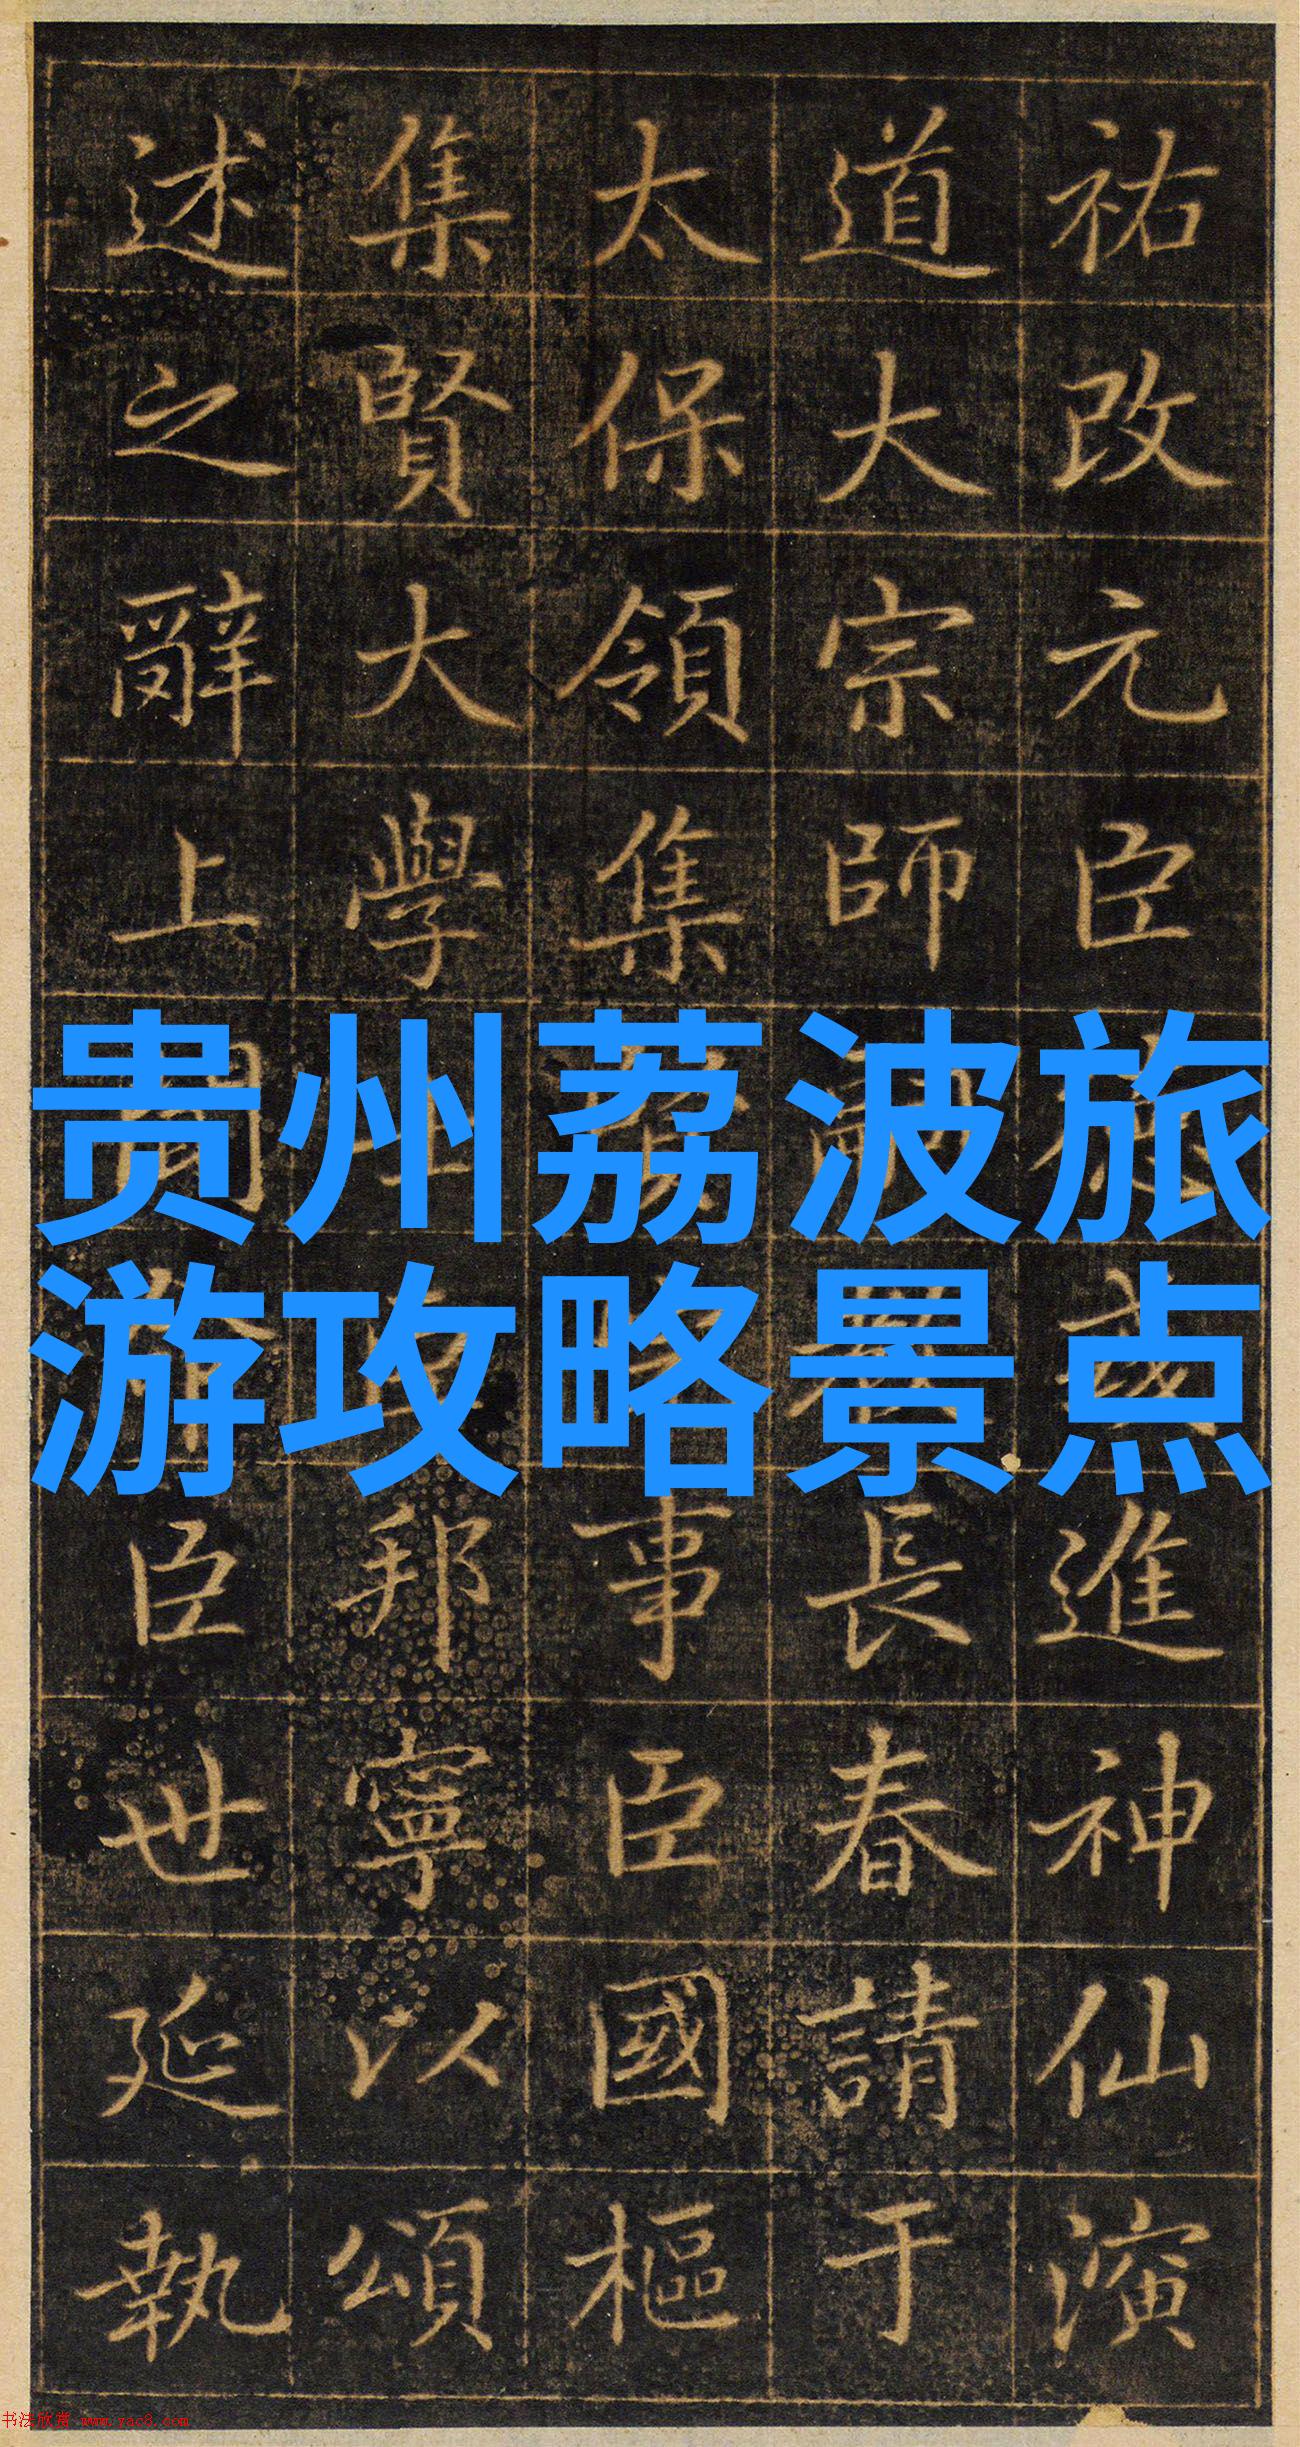 贵州荔波旅
游攻略景点
祐改元臣進神仙演
道大宗師長春請于
太保領集事臣國樞
集賢大學邦寧以頌
述之辭上臣世延執
书法欣赏 www.yac8.com